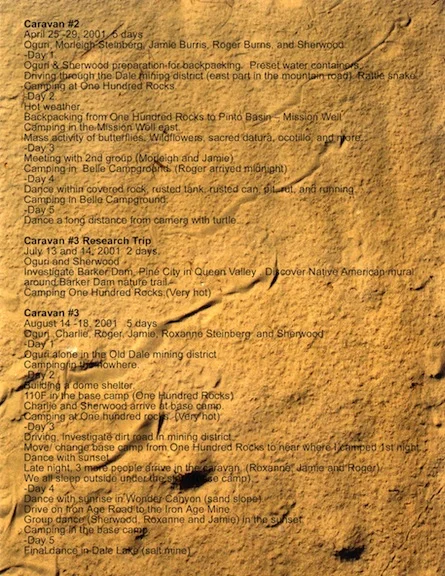 Caravan #2
April 25 -29, 2001, 5 days
Oguri, Morleigh Steinberg, Jamie Burris, Roger Burns, and Sherwood
-Day 1
Oguri & Sherwood preparation for backpacking. Preset water containers.
Driving through the Dale mining district (east part in the mountain road). Rattle snake.
Camping at One Hundred Rocks.
-Day 2
Hot weather.
Backpacking from One Hundred Rocks to Pinto Basin – Mission Well
Camping in the Mission Well east.
Mass activity of butterflies, Wildflowers, sacred datura, ocotillo, and more.
-Day 3
Meeting with 2nd group (Morleigh and Jamie)
Camping in Belle Campground. (Roger arrived midnight)
-Day 4
Dance within covered rock, rusted tank, rusted can, pit, rut, and running.
Camping In Belle Campground.
-Day 5
Dance a long distance from camera with turtle...
Caravan #3 Research Trip
July 13 and 14, 2001 2 days.
Oguri and Sherwood
Investigate Barker Dam, Pine City in Queen Valley. Discover Native American mural
around Barker Dam nature trail.
Camping One Hundred Rocks (Very hot)
Caravan #3
August 14 -18, 2001 5 days
Oguri, Charlie, Roger, Jamie, Roxanne Steinberg, and Sherwood
-Day 1
Oguri alone in the Old Dale mining district
Camping in the nowhere.
-Day 2
Building a dome shelter.
110F in the base camp (One Hundred Rocks)
Charlie and Sherwood arrive at base camp.
Camping at One hundred rocks. (Very hot)
-Day 3
Driving, Investigate dirt road in mining district.
Move/ change base camp from One Hundred Rocks to near where I camped 1st night.
Dance with sunset
Late night, 3 more people arrive in the caravan. (Roxanne, Jamie and Roger)
We all sleep outside under the camp)
-Day 4
Dance with sunrise in Wonder Canyon (sand slope)
Drive on Iron Age Road to the Iron Age Mine
Group dance (Sherwood, Roxanne and Jamie) in the sunset
Camping in the base camp.
-Day 5
Final dance in Dale Lake (salt mine)